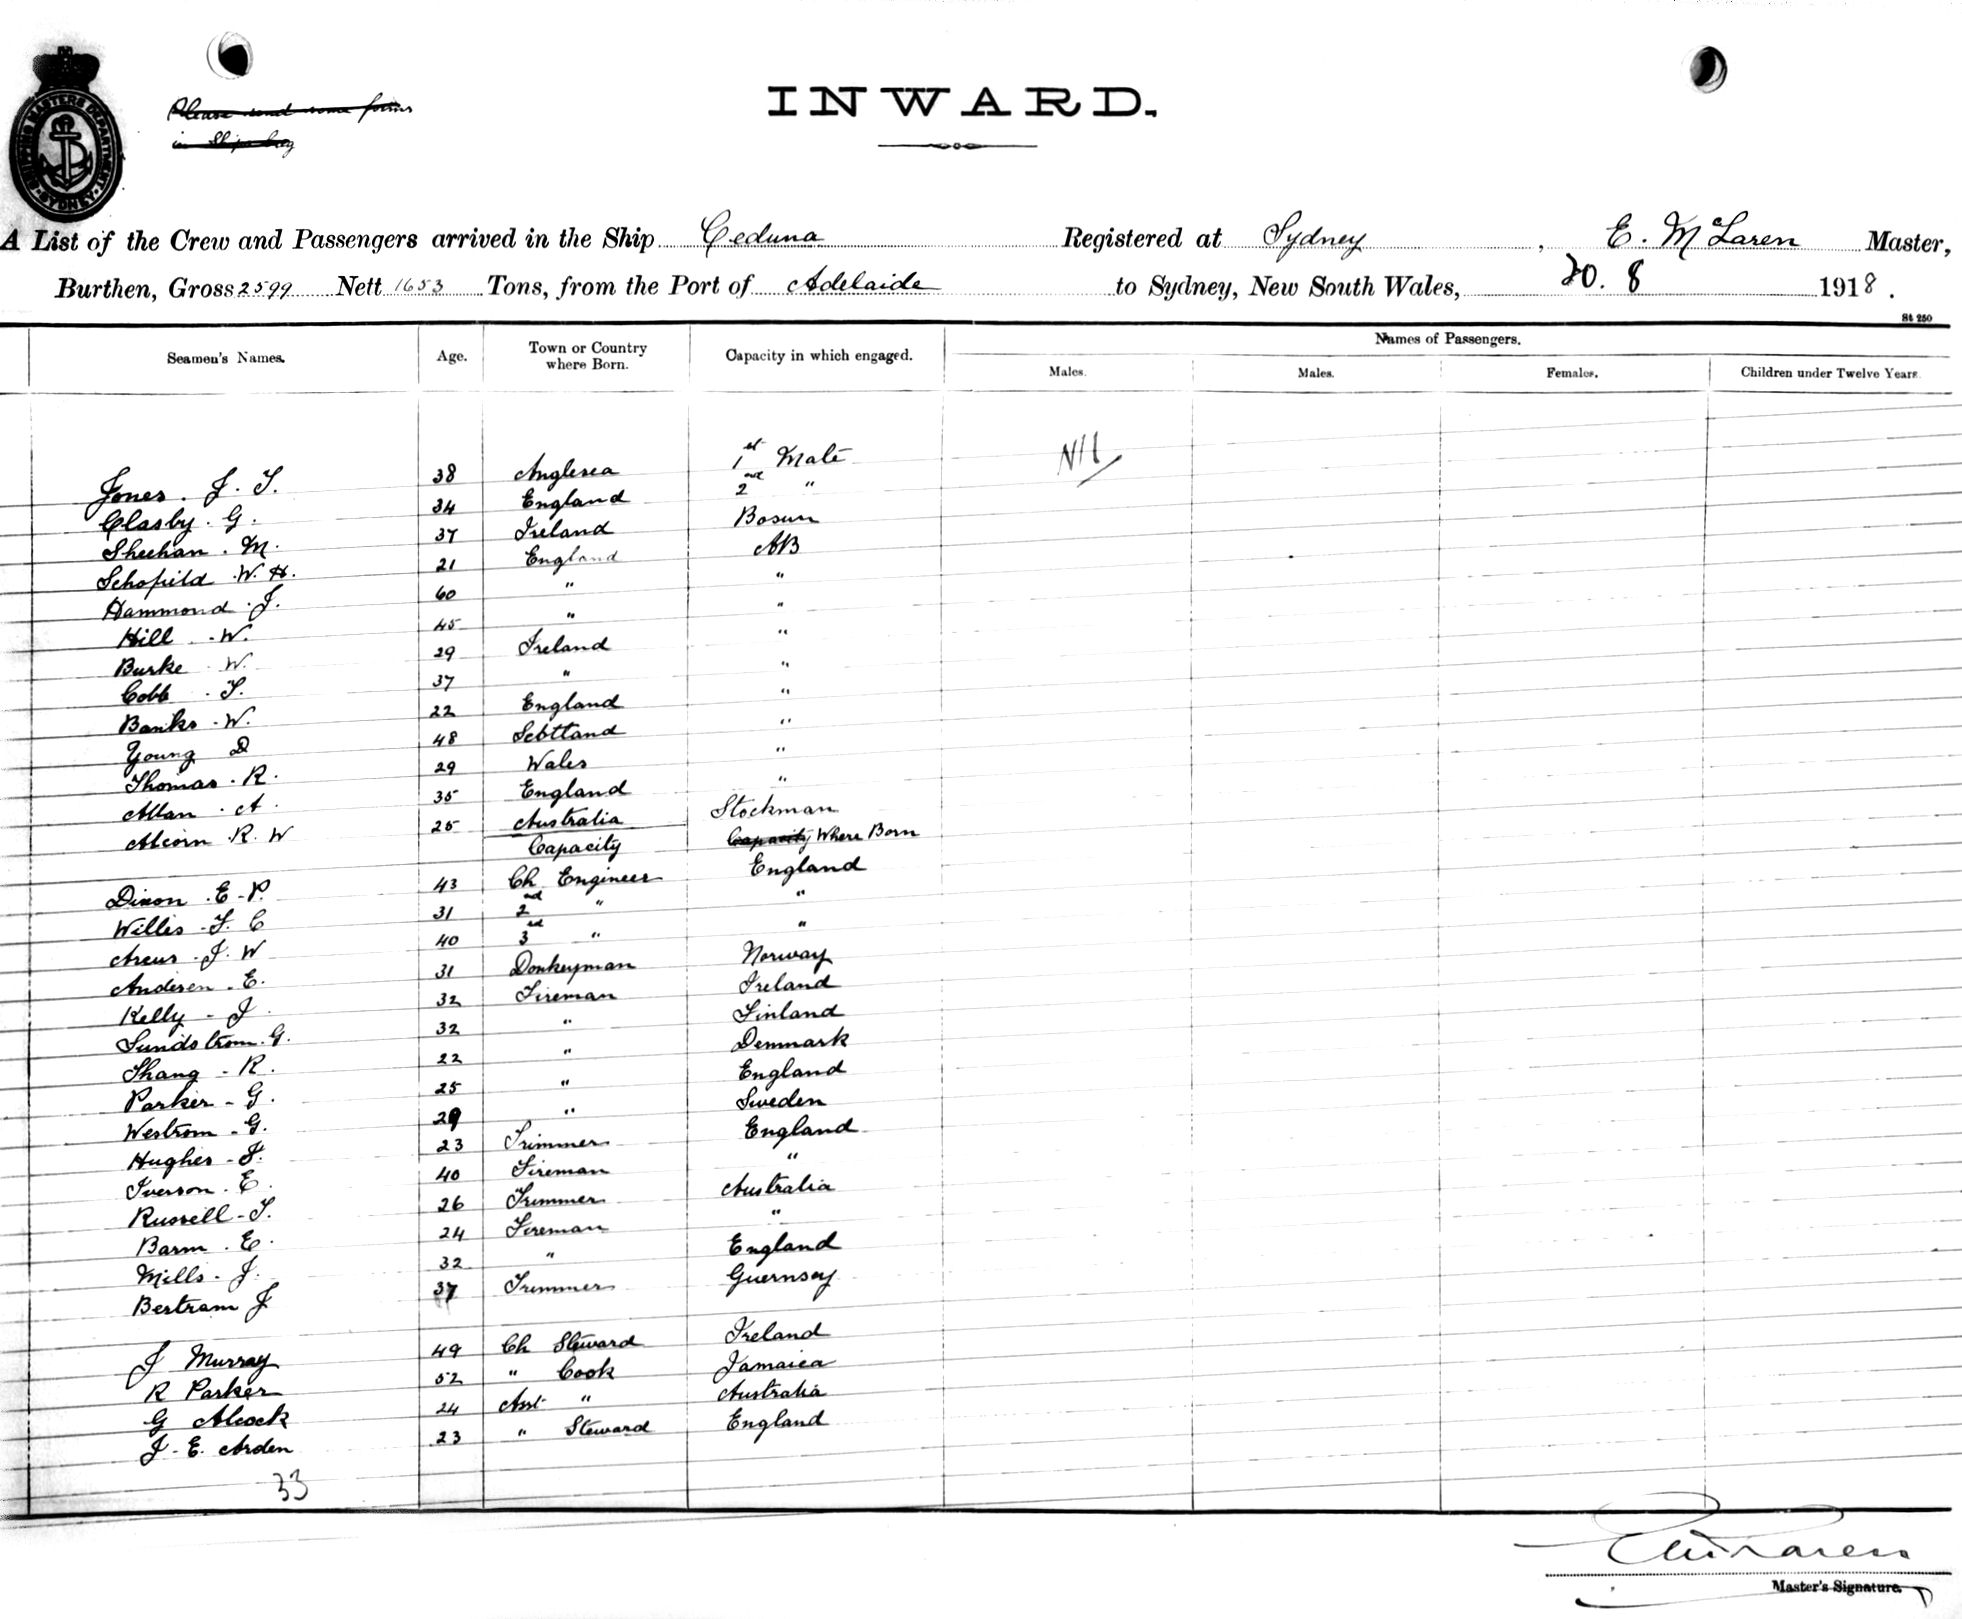 SHIPPING MASTERS DEPARTMENT
SYDNEY
Please send some forms
in Ships bag
INWARD.
A List of the Crew and Passengers arrived in the Ship Ceduna Registered at Sydney, E. McLaren Master,
Burthen, Gross 2599 Nett 1653 Tons, from the Port of Adelaide to Sydney, New South Wales, 20. 8 1918.
St 250
Seamen's Names. Age. Town or Country where Born. Capacity in which engaged. Names of Passengers.
Males. Males. Females. Children under Twelve Years.
Jones. J. T. 38 Anglesea 1st Mate Nil
Clasby. G. 34 England 2nd "
Sheehan. M. 37 Ireland Bosun
Schofield W. H. 21 England AB
Hammond J. 60 " "
Hill W. 45 " "
Burke W. 29 Ireland "
Cobb T. 37 " "
Banks W. 22 England "
Young D 48 Scotland "
Thomas R. 29 Wales "
Allan A. 35 England "
Alcorn R. W 25 Australia Stockman
Capacity Capacity Where Born
Dixon E. P. 43 Ch Engineer England
Willis T. C 31 2nd " "
Arcus J. W 40 3rd " "
Andersen E. 31 Donkeyman Norway
Kelly J 32 Fireman Ireland
Sundstrom G. 32 " Finland
Shang R. 22 " Denmark
Parker G. 25 " England
Westrom G. 29 " Sweden
Hughes J. 23 Trimmer England
Iverson. E. 40 Fireman "
Russell T. 26 Trimmer Australia
Barm E. 24 Fireman "
Mills J. 32 " England
Bertram J 37 Trimmer Guernsey
J Murray 49 Ch Steward Ireland
R Parker 52 " Cook Jamaica
G Alcock 24 Asst " Australia
J. E. Arden 23 " Steward England
33
E McLaren
Master's Signature.